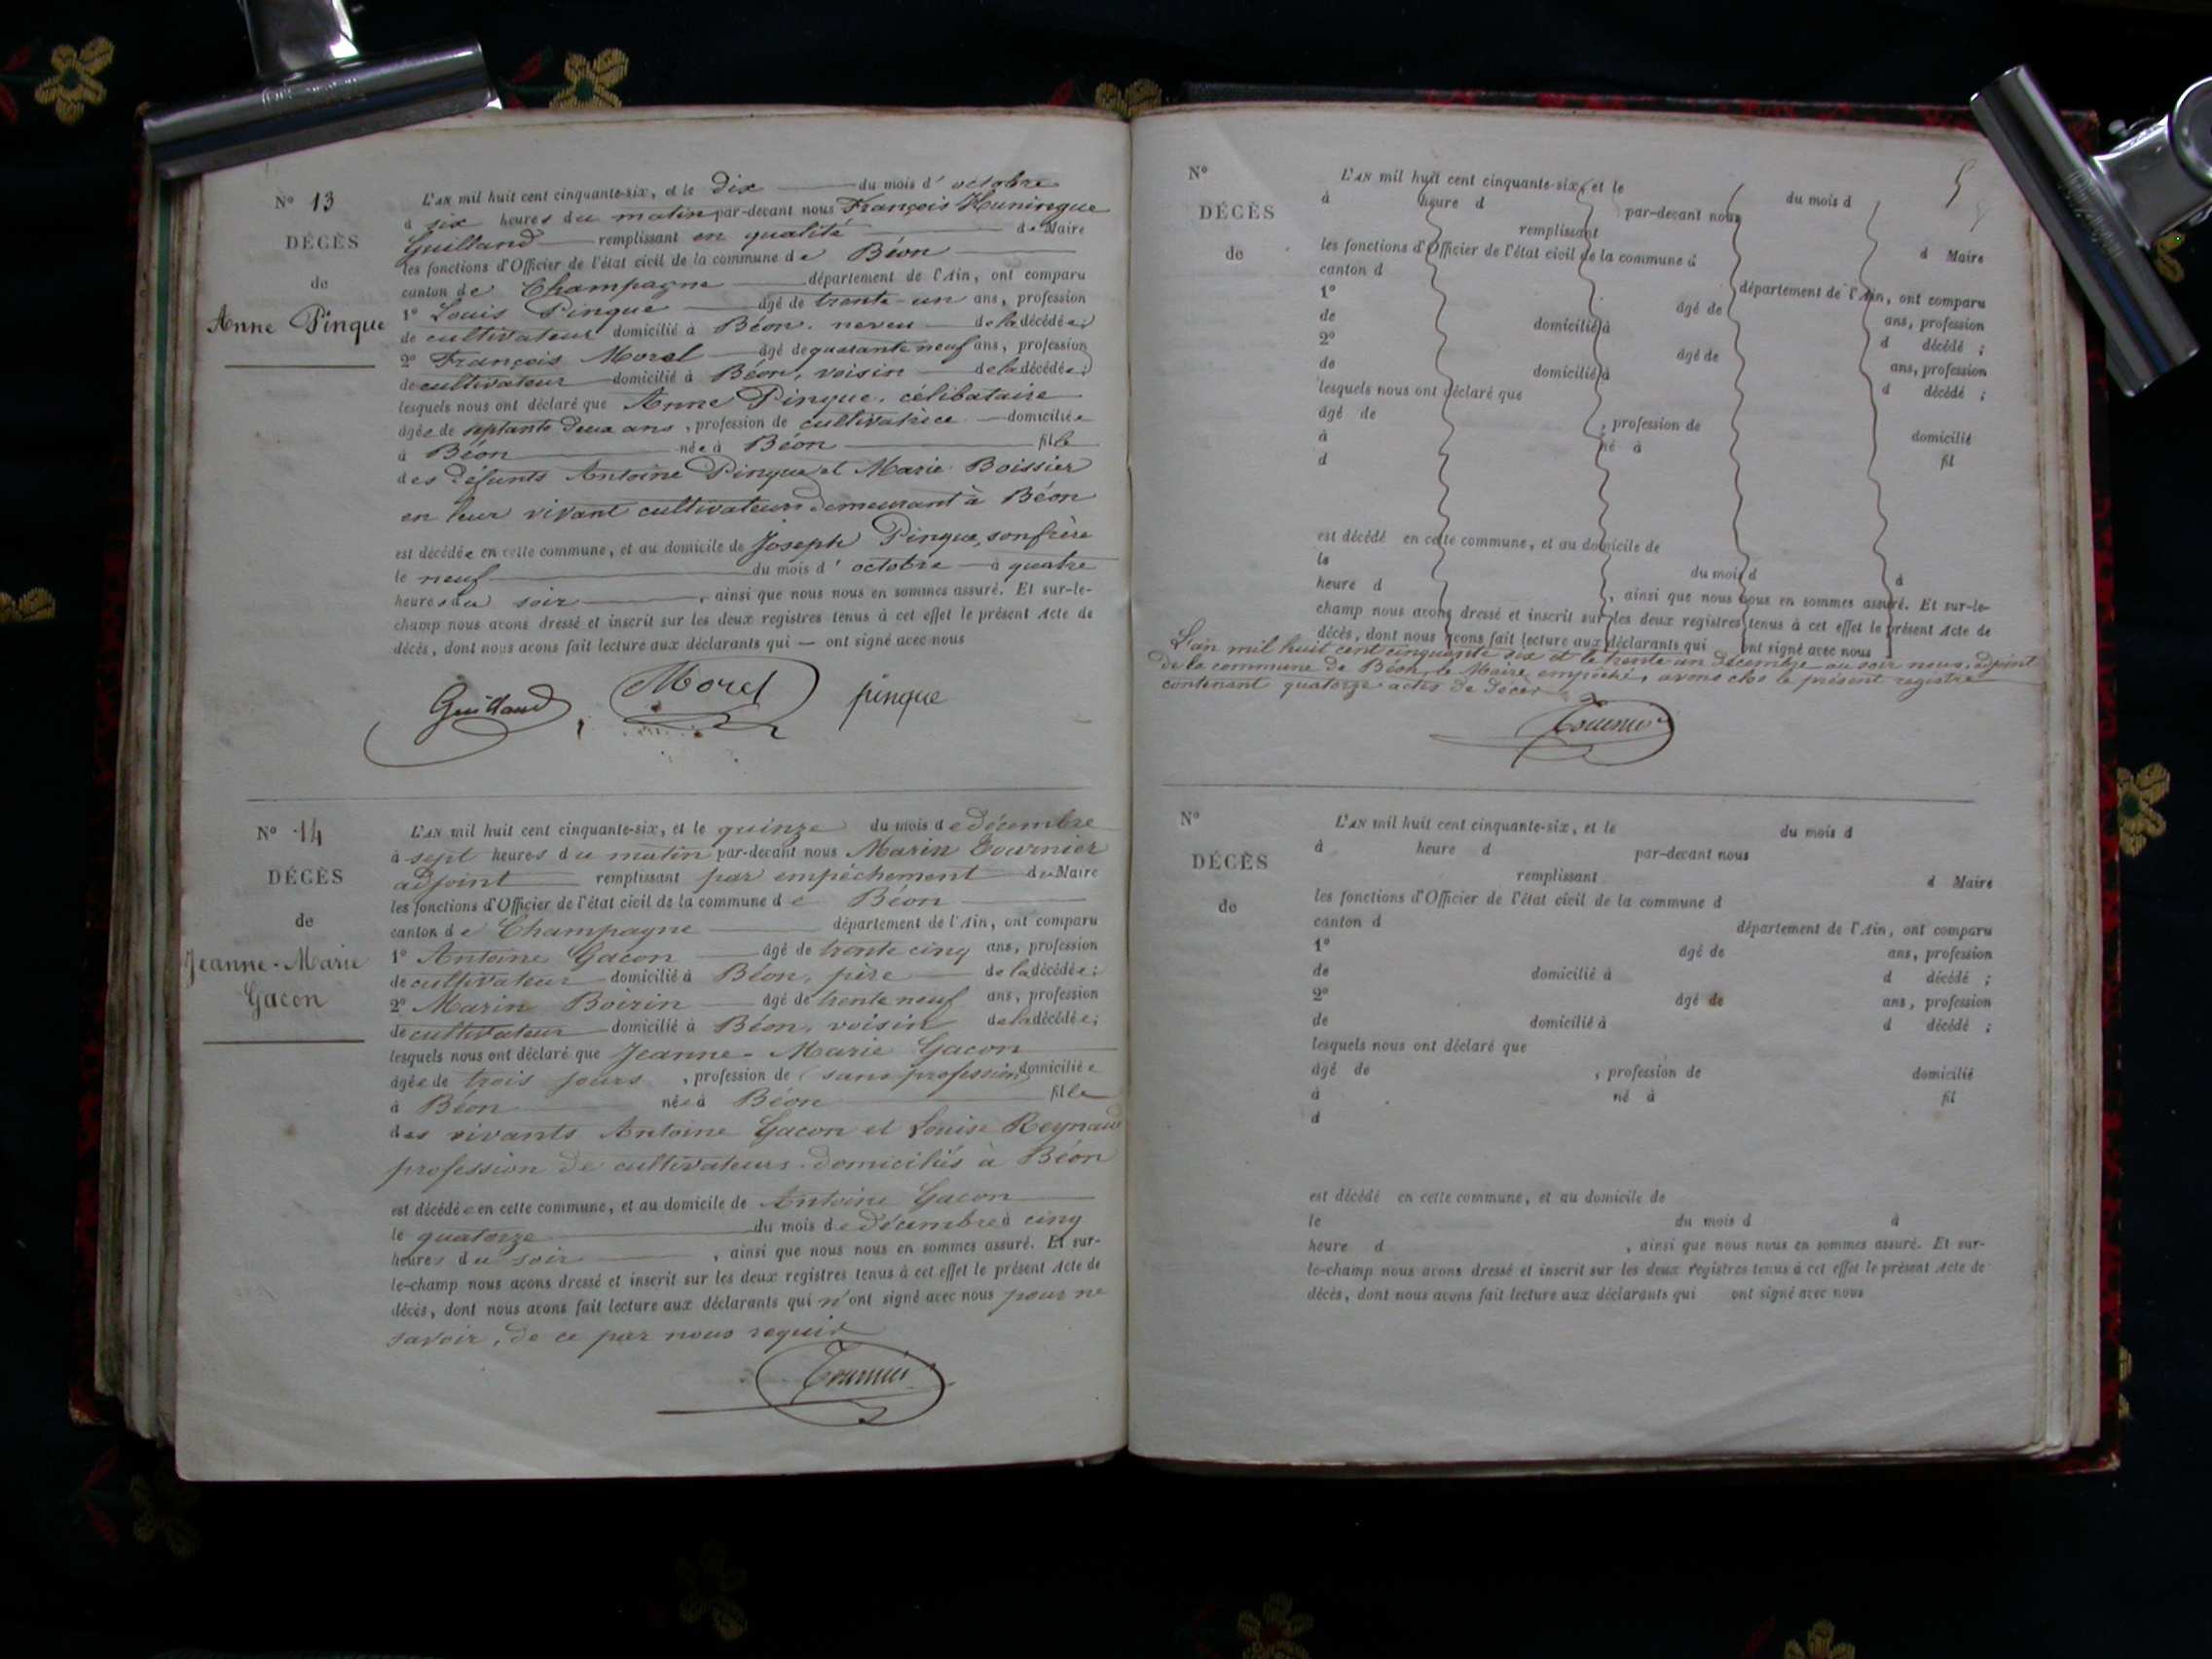 N° 13
DÉCÈS
de
Anne Pinque
L'AN mil huit cent cinquante-six, et le dix du mois d' octobre
à six heures du matin par-devant nous François Huningue
Guilland remplissant en qualité de Maire
les fonctions d'Officier de l'état civil de la commune de Béon
canton de Champagne département de l'Ain, ont comparu
1° Louis Pinque âgé de trente-un ans, profession
de cultivateur domicilié à Béon, neveu de la décédée;
2° François Morel âgé de quarante neuf ans, profession
de cultivateur domicilié à Béon, voisin de la décédée;
lesquels nous ont déclaré que Anne Pinque, célibataire
âgée de septante deux ans, profession de cultivatrice domiciliée
à Béon née à Béon fille
des défunts Antoine Pinque et Marie Boissier
en leur vivant cultivateurs demeurant à Béon
est décédée en cette commune, et au domicile de Joseph Pinque, son frère
le neuf du mois d' octobre à quatre
heures du soir, ainsi que nous nous en sommes assuré. Et sur-le-
champ nous avons dressé et inscrit sur les deux registres tenus à cet effet le présent Acte de
décès, dont nous avons fait lecture aux déclarants qui — ont signé avec nous
Guilland Morel pinque
N° 14
DÉCÈS
de
Jeanne-Marie
Gacon
L'AN mil huit cent cinquante-six, et le quinze du mois de décembre
à sept heures du matin par-devant nous Marin Tournier
adjoint remplissant par empêchement du Maire
les fonctions d'Officier de l'état civil de la commune de Béon
canton de Champagne département de l'Ain, ont comparu
1° Antoine Gacon âgé de trente cinq ans, profession
de cultivateur domicilié à Béon, père de la décédée;
2° Marin Boirin âgé de trente neuf ans, profession
de cultivateur domicilié à Béon, voisin de la décédée;
lesquels nous ont déclaré que Jeanne-Marie Gacon
âgée de trois jours, profession de (sans profession) domiciliée
à Béon née à Béon fille
des vivants Antoine Gacon et Louise Reynaud
profession de cultivateurs domiciliés à Béon
est décédée en cette commune, et au domicile de Antoine Gacon
le quatorze du mois de décembre à cinq
heures du soir, ainsi que nous nous en sommes assuré. Et sur-
le-champ nous avons dressé et inscrit sur les deux registres tenus à cet effet le présent Acte de
décès, dont nous avons fait lecture aux déclarants qui n'ont signé avec nous pour ne
savoir, de ce par nous requis
Tournier
5
N°
DÉCÈS
de
L'AN mil huit cent cinquante-six, et le du mois d
à heure d par-devant nous
remplissant d Maire
les fonctions d'Officier de l'état civil de la commune d
canton d département de l'Ain, ont comparu
1° âgé de ans, profession
de domicilié à d décédé ;
2° âgé de ans, profession
de domicilié à d décédé ;
lesquels nous ont déclaré que
âgé de , profession de domicilié
à né à fil
d
est décédé en cette commune, et au domicile de
le du mois d à
heure d , ainsi que nous nous en sommes assuré. Et sur-le-
champ nous avons dressé et inscrit sur les deux registres tenus à cet effet le présent Acte de
décès, dont nous avons fait lecture aux déclarants qui ont signé avec nous
L'an mil huit cent cinquante six et le trente un décembre au soir nous, adjoint
de la commune de Béon, le Maire empêché, avons clos le présent registre
contenant quatorze actes de décès
Tournier
N°
DÉCÈS
de
L'AN mil huit cent cinquante-six, et le du mois d
à heure d par-devant nous
remplissant d Maire
les fonctions d'Officier de l'état civil de la commune d
canton d département de l'Ain, ont comparu
1° âgé de ans, profession
de domicilié à d décédé ;
2° âgé de ans, profession
de domicilié à d décédé ;
lesquels nous ont déclaré que
âgé de , profession de domicilié
à né à fil
d
est décédé en cette commune, et au domicile de
le du mois d à
heure d , ainsi que nous nous en sommes assuré. Et sur-
le-champ nous avons dressé et inscrit sur les deux registres tenus à cet effet le présent Acte de
décès, dont nous avons fait lecture aux déclarants qui ont signé avec nous